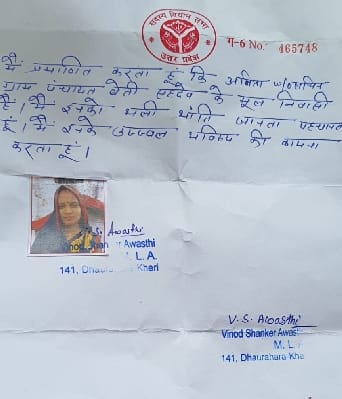 सदस्य विधान सभा
उत्तर प्रदेश
ग-6 No. 465748
मैं प्रमाणित करता हूं कि अनिता w/o सचिन
ग्राम पंचायत वेती सहदेव के मूल निवासी
है। मैं इनको भली भांति जानता पहचानता
हूं। मैं इनके उज्ज्वल भविष्य की कामना
करता हूं।
V.S. Awasthi
Vinod Shanker Awasthi
M.L.A.
141, Dhaurahara Kheri
V.S. Awasthi
Vinod Shanker Awast
M.L.
141, Dhaurahara-Khe